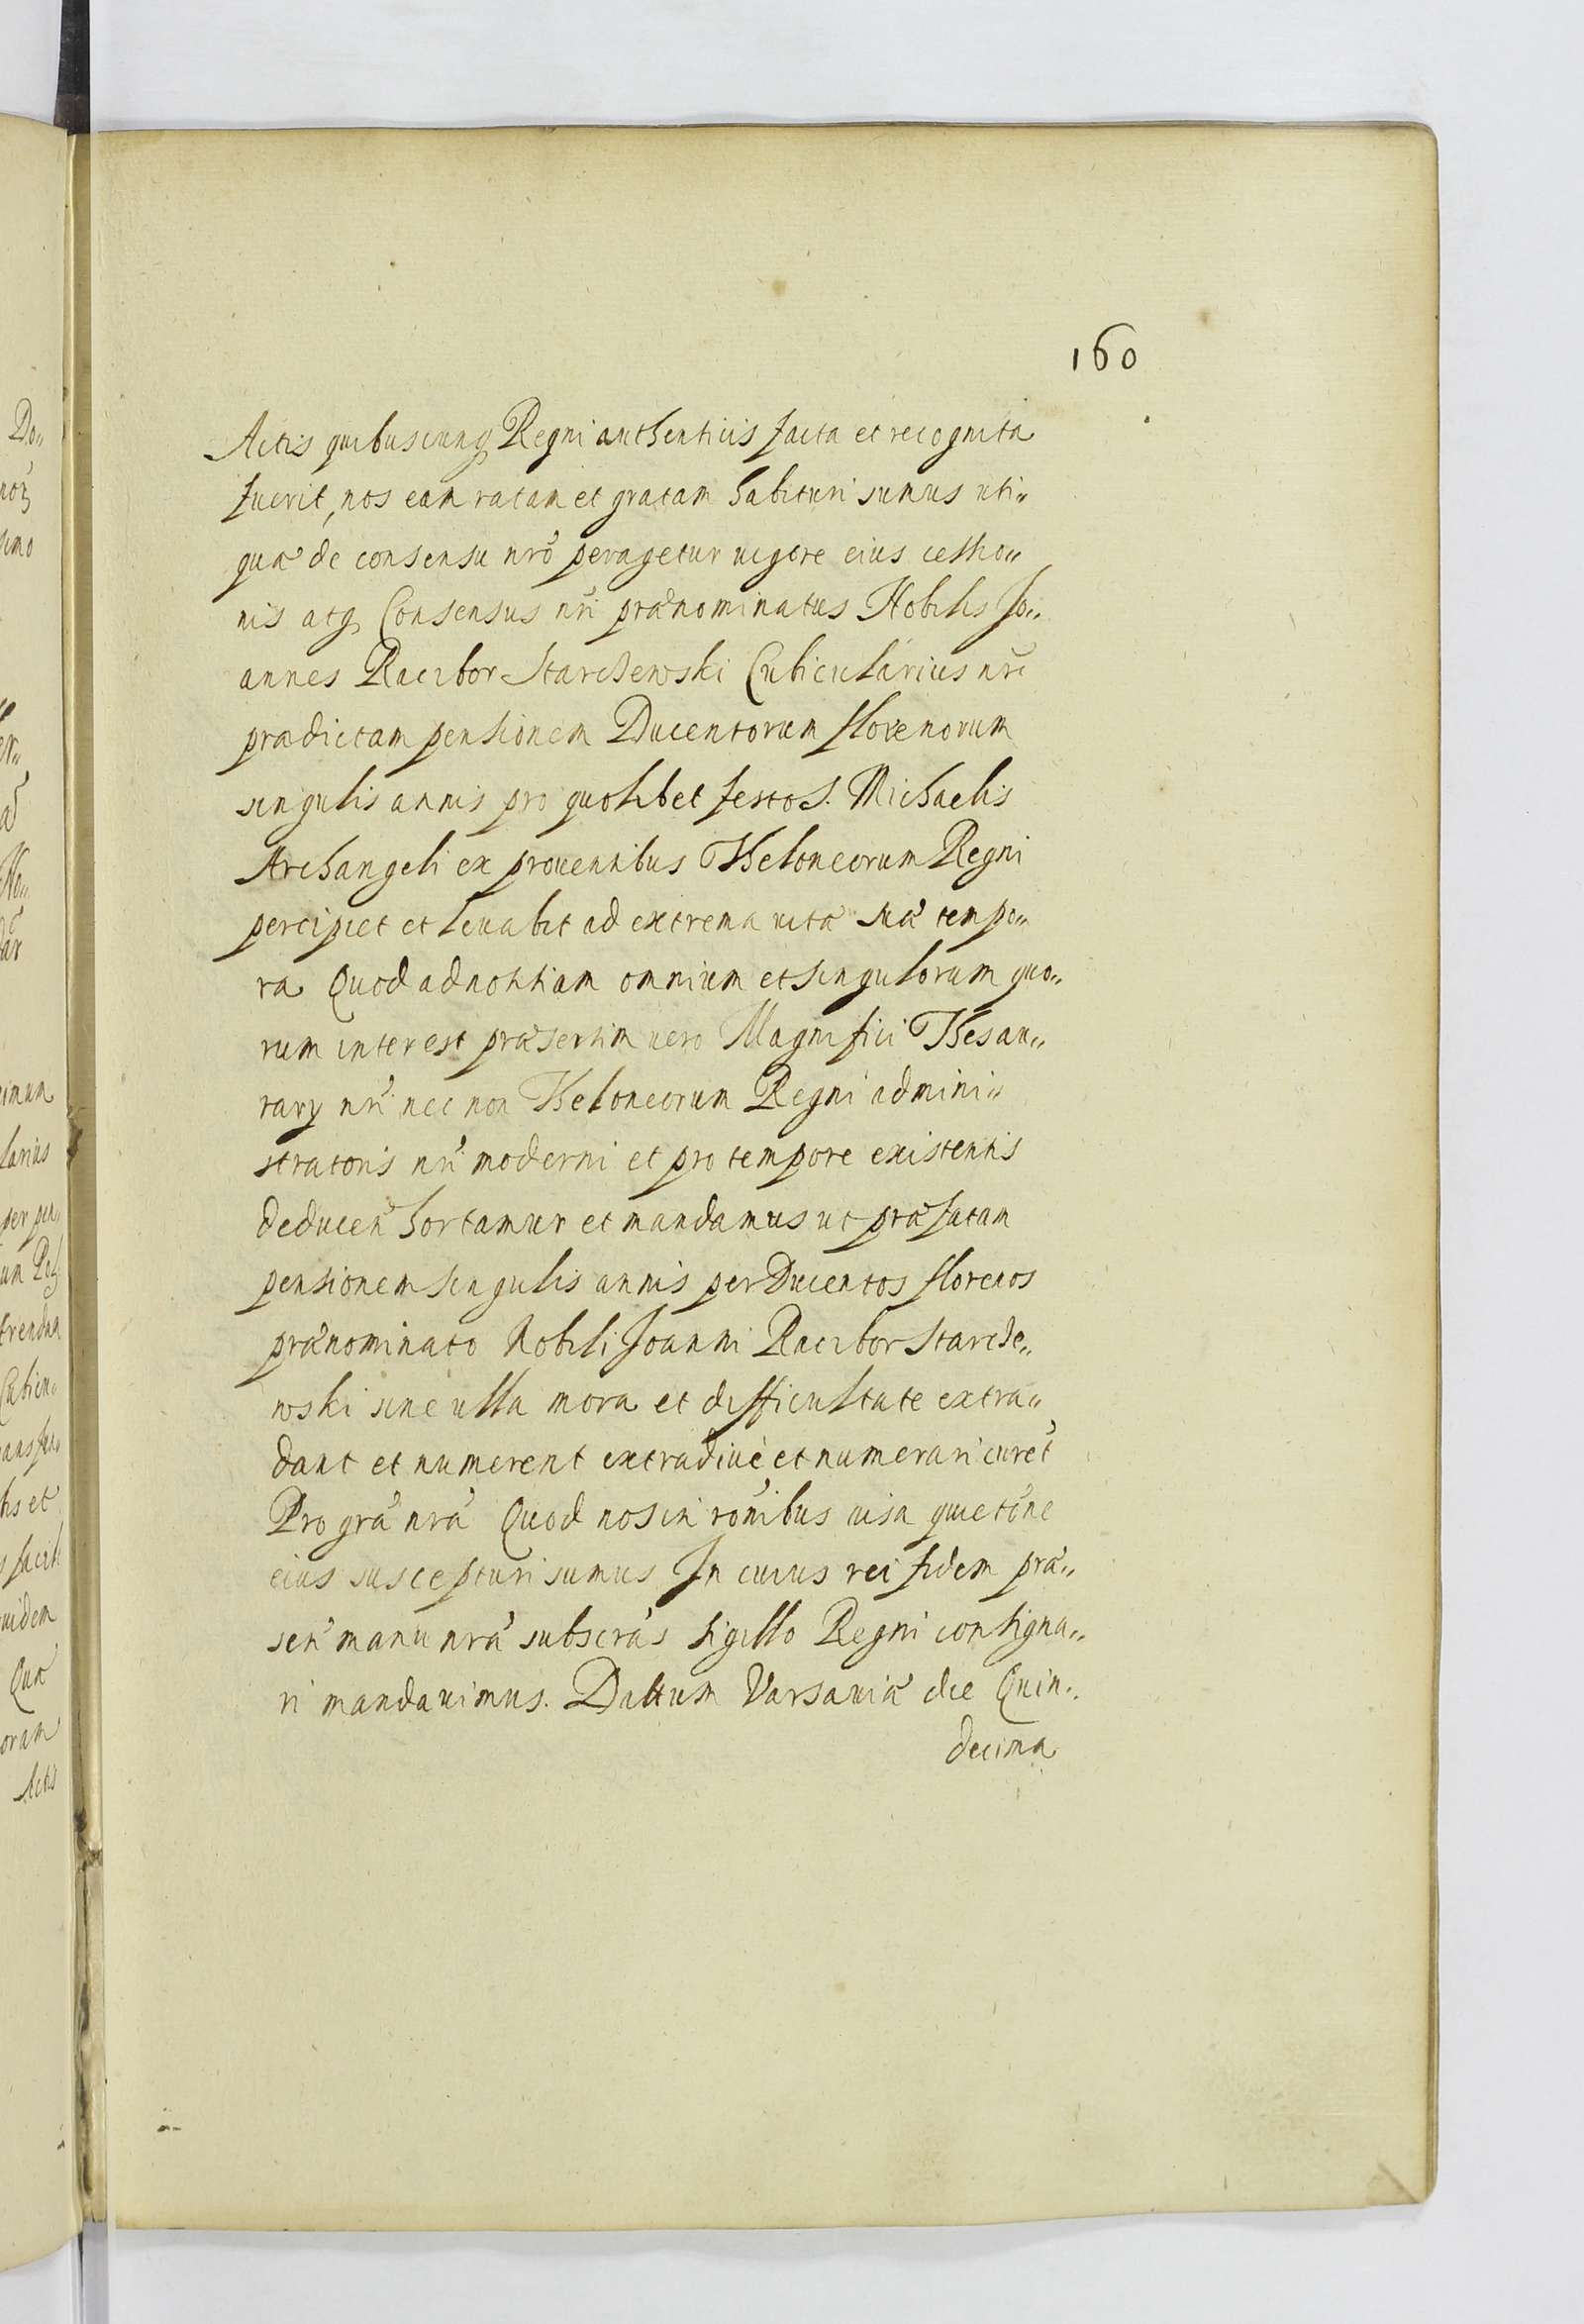 160
Actis quibuscunq Regni authenticis facta et recognita
fuerit, nos eam ratam et gratam habituri sumus uti"
qua de consensu nro peragetur uigore eius cessio"
nis atq Consensus nri prænominatus Nobilis Jo"
annes Racibor Starchewski Cubicularius nri
prædictam pensionem Ducentorum florenorum
singulis annis pro quolibet festo S. Michaelis
Archangeli ex prouentibus Theloneorum Regni
percipiet et leuabit ad extrema uitæ suæ tempo"
ra Quod ad notitiam omnium et singulorum quo"
rum interest præsertim uero Magnifici Thesau"
rarij nri nec non Theloneorum Regni admini"
stratoris nri moderni et pro tempore existentis
deducen hortamur et mandamus ut præfatam
pensionem singulis annis per Ducentos florenos
prænominato Nobili Joanni Racibor Starche"
wski sine ulla mora et difficultate extra"
dant et numerent extradiue et numerari curet
Pro gra nra Quod nos in ronibus uisa quietone
eius suscepturi sumus In cuius rei fidem præ"
sen manu nra subscras sigillo Regni consigna"
ri mandauimus. Dattum Varsauiæ die Quin"
decima
Do"
simo
larius
Cubicu"
tis et
Qua
Actis